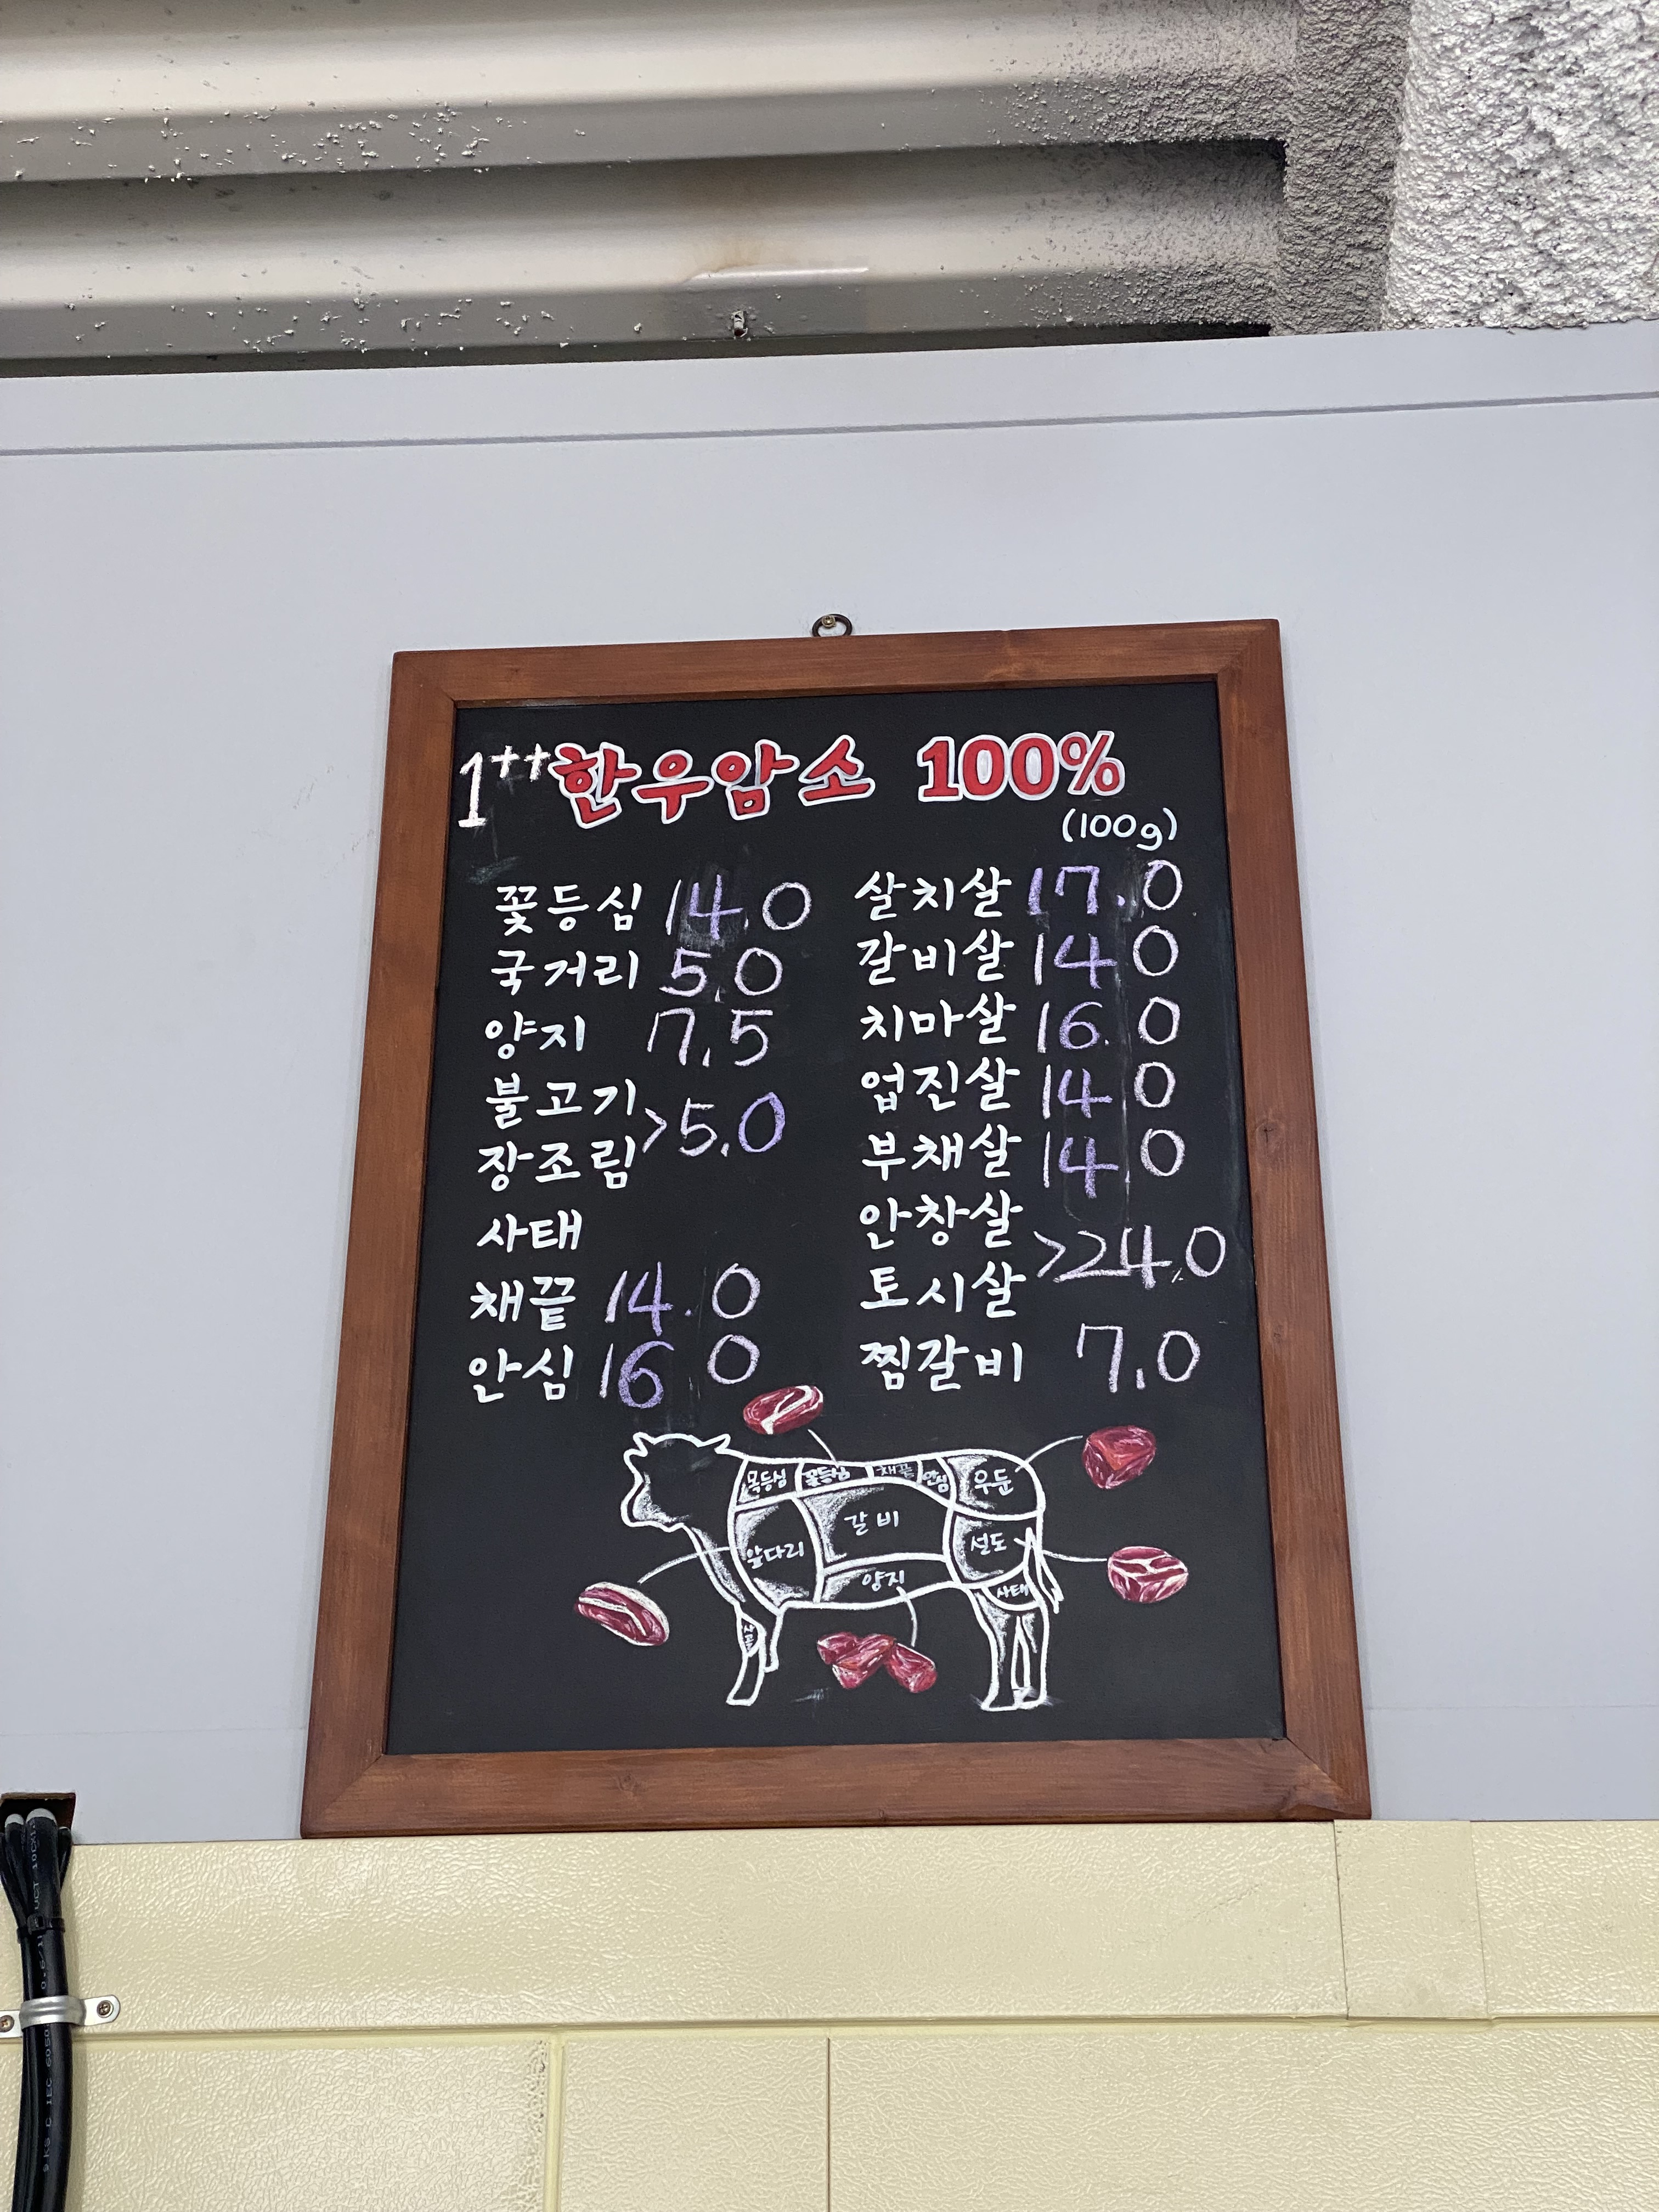 1++ 한우암소 100%
(100g)
꽃등심 14.0
국거리 5.0
양지 7.5
불고기
장조림 >5.0
사태
채끝 14.0
안심 16 0
살치살 17.0
갈비살 14 0
치마살 16.0
업진살 14 0
부채살 14 0
안창살
토시살 >24.0
찜갈비 7.0
목등심 꽃등심 채끝 안심 우둔
갈비
앞다리 설도
양지
사태